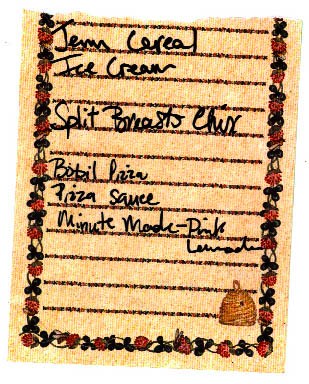 Jenn Cereal
Ice Cream
Split Breasts Chix
Bobil Pizza
Pizza Sauce
Minute Made-Pink
Lemonade